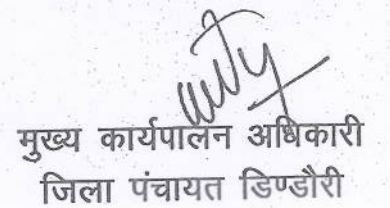 मुख्य कार्यपालन अधिकारी
जिला पंचायत डिण्डौरी